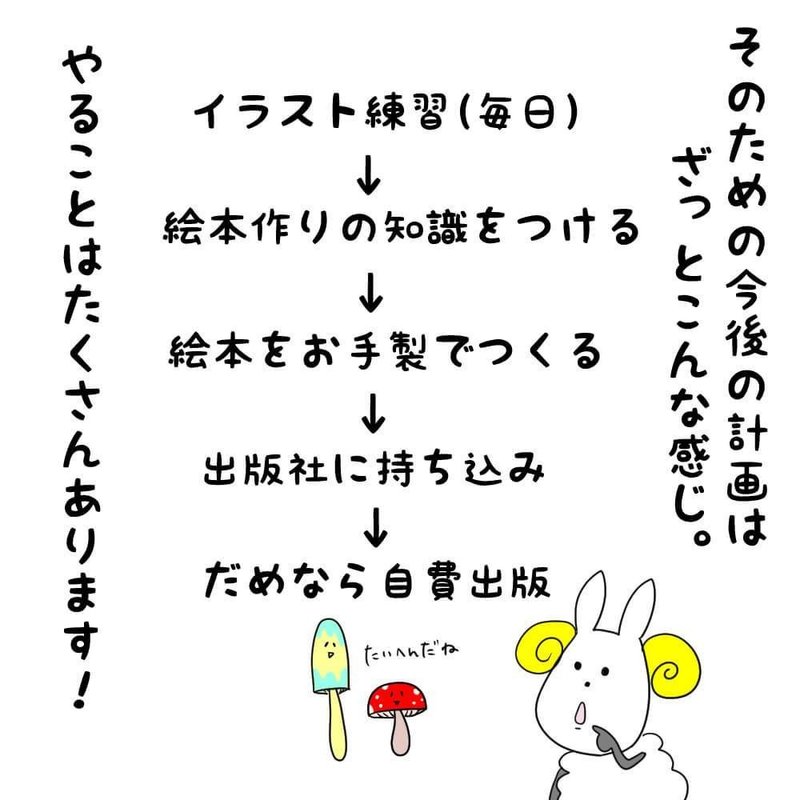 そのための今後の計画は
ざっとこんな感じ。
イラスト練習(毎日)
↓
絵本作りの知識をつける
↓
絵本をお手製でつくる
↓
出版社に持ち込み
↓
だめなら自費出版
たいへんだね
やることはたくさんあります!